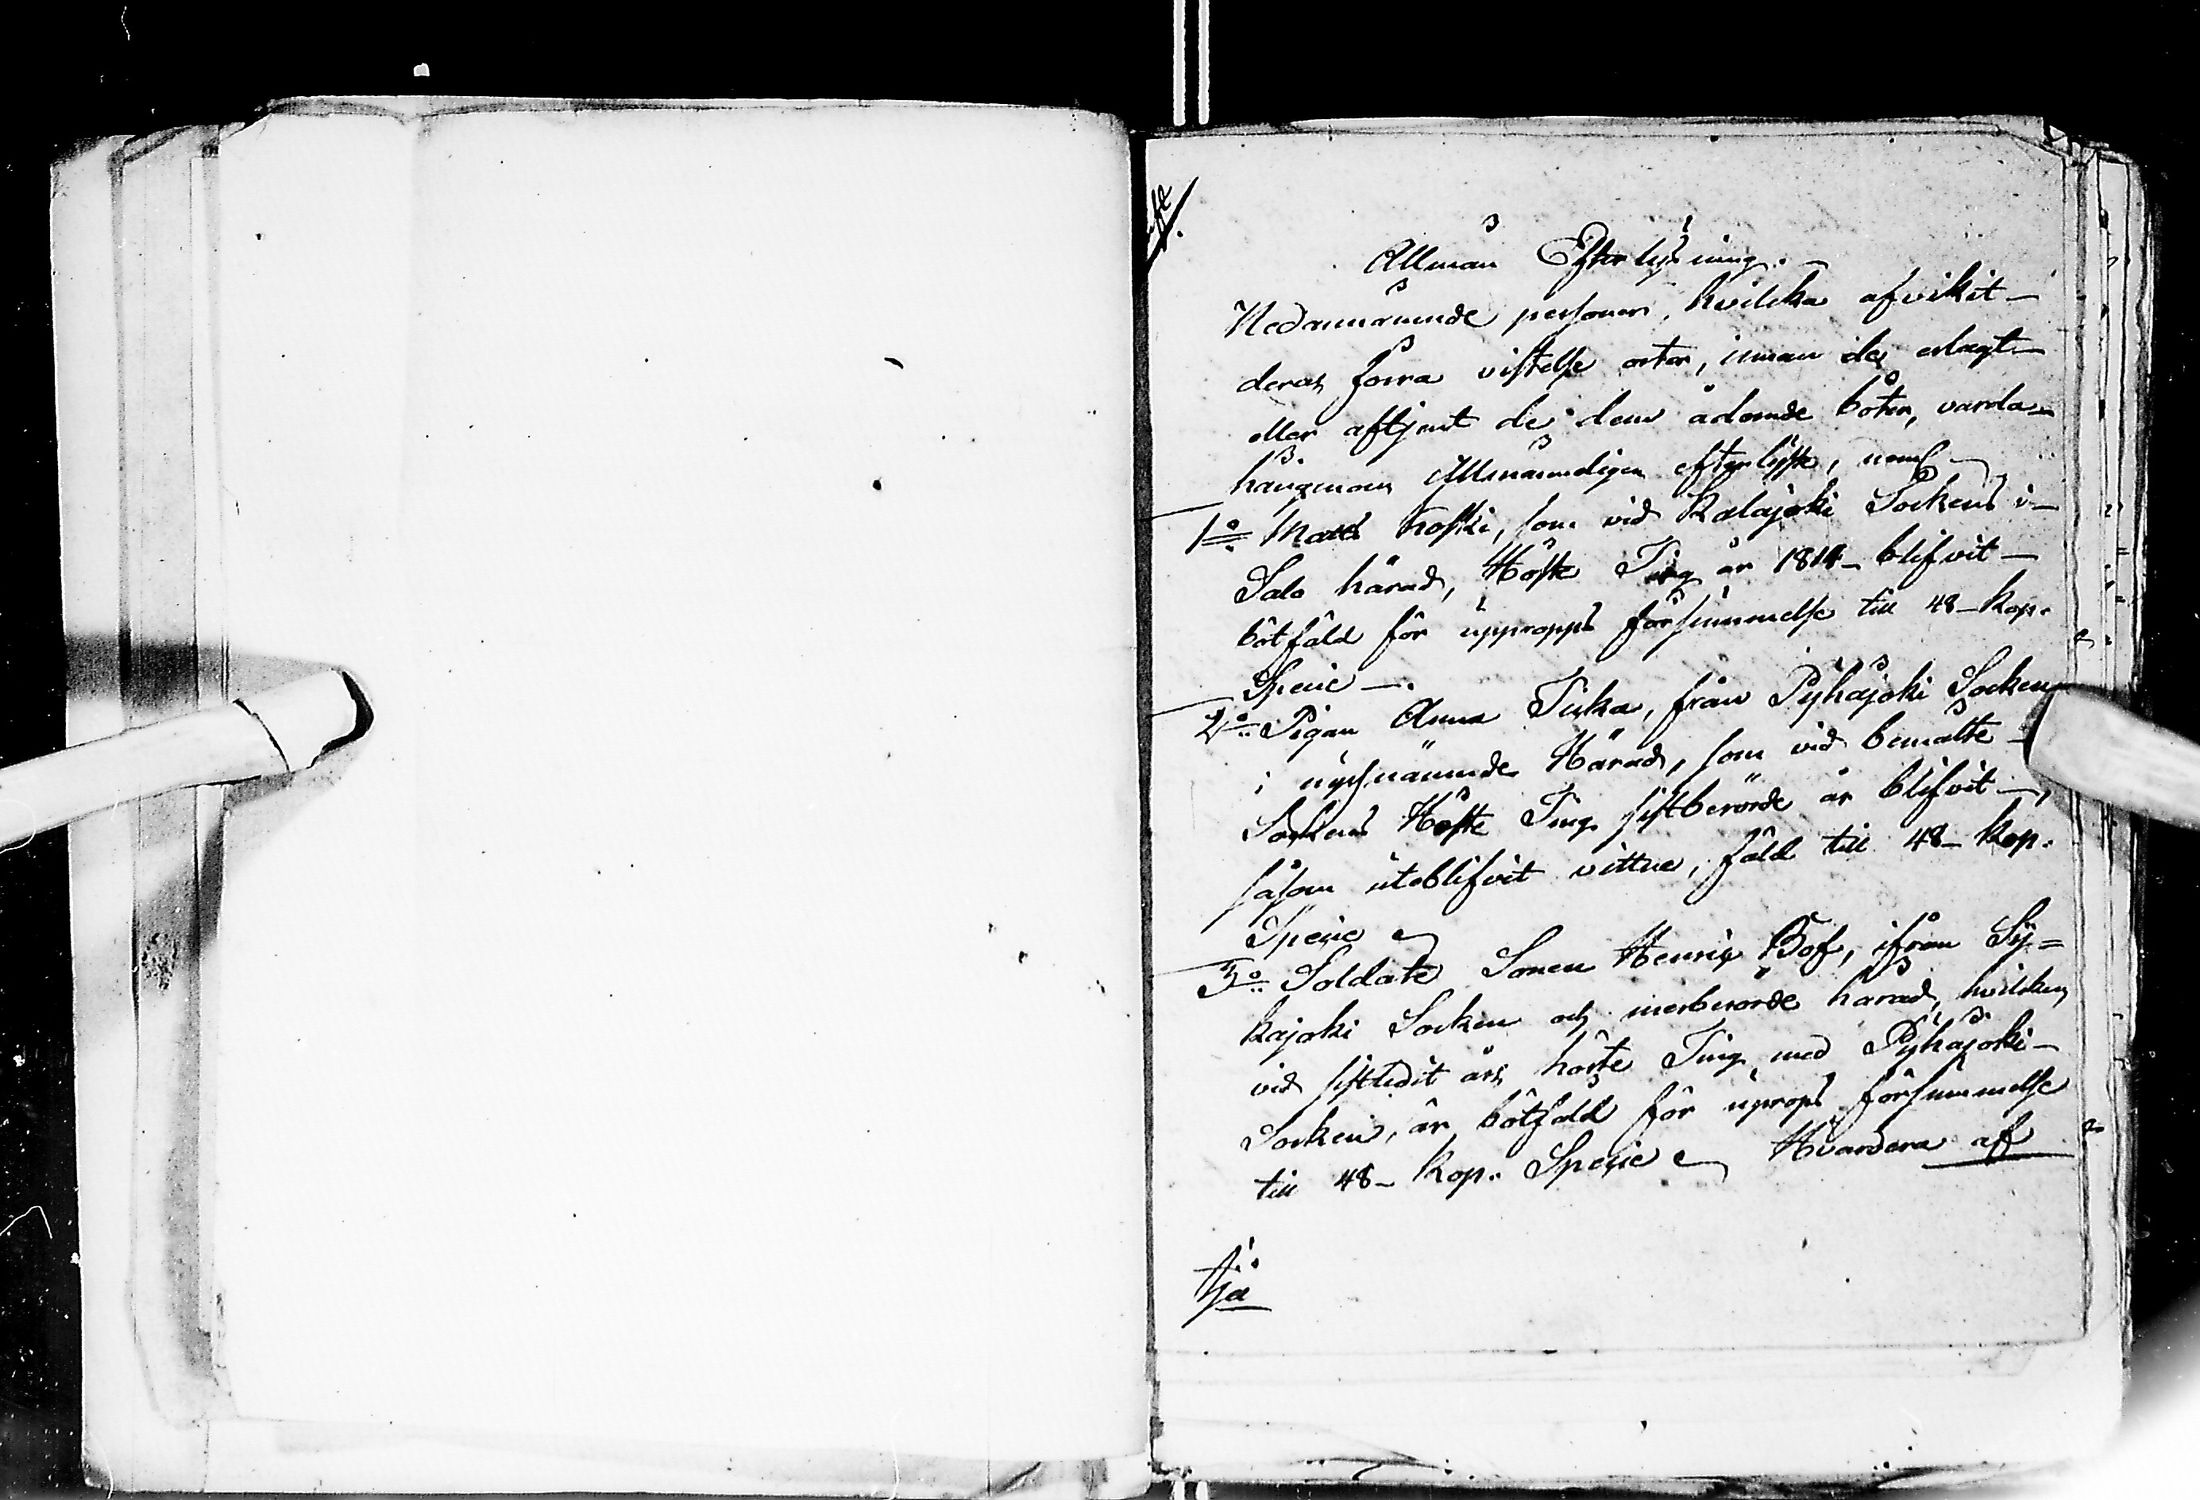 Allmän Efterlysning.
Nedannämnde personer, hvilcka afvikit
deras förra vistelse orter, innan de erlagt
eller aftjent de dem ådömde böter, varda
härigenom Allmänneligen efterlyste, neml.
1o Matts Koski, som vid Kalajoki Sockens i
Salo härad, Höste Ting år 1814 blifvit
bötfäld för upropps försummelse till 48 kop.
Specie.
2o Pigan Anna Tuka, från Pyhäjoki Socken
i nyssnämnde Härad, som vid bemälte
Sockens Höste Ting sistberörde år blifvit,
såsom uteblifvit vittne, fäld till 48 kop.
Specie
3o Soldate Sonen Henric Bof, ifrån Sij=
kajoki Socken och merberörde härad, hvilcken
vid sistledit års höste Ting med Pyhäjoki
Socken, är bötfäld för uprops försummelse
till 48 kop. Specie Hvardera af